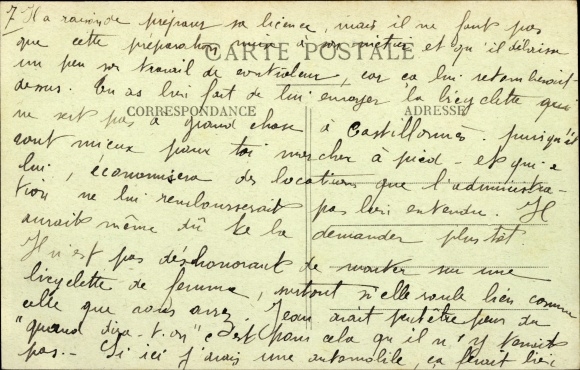 7 Il a raison de préparer sa licence, mais il ne faut pas
que cette préparation nuise à son métier et qu'il délaisse
CARTE POSTALE
un peu son travail de contrôleur, car ça lui retomberait
dessus. Tu as bien fait de lui envoyer la bicyclette qui
CORRESPONDANCE ADRESSE
ne sert pas à grand chose à Castillonnès, puisqu'il
vaut mieux pour toi marcher à pied - et qui
lui, économisera des locations que l'administra-
tion ne lui rembousserait pas bien entendu. Il
aurait même dû te la demander plus tôt.
Il n'est pas déshonorant de monter sur une
bicyclette de femme, surtout si elle roule bien comme
celle que nous avons. Jean avait peut-être peur du
"quand dira-t-on" c'est pour cela qu'il n'y tenait
pas. - Si ici j'avais une automobile, ça ferait bien